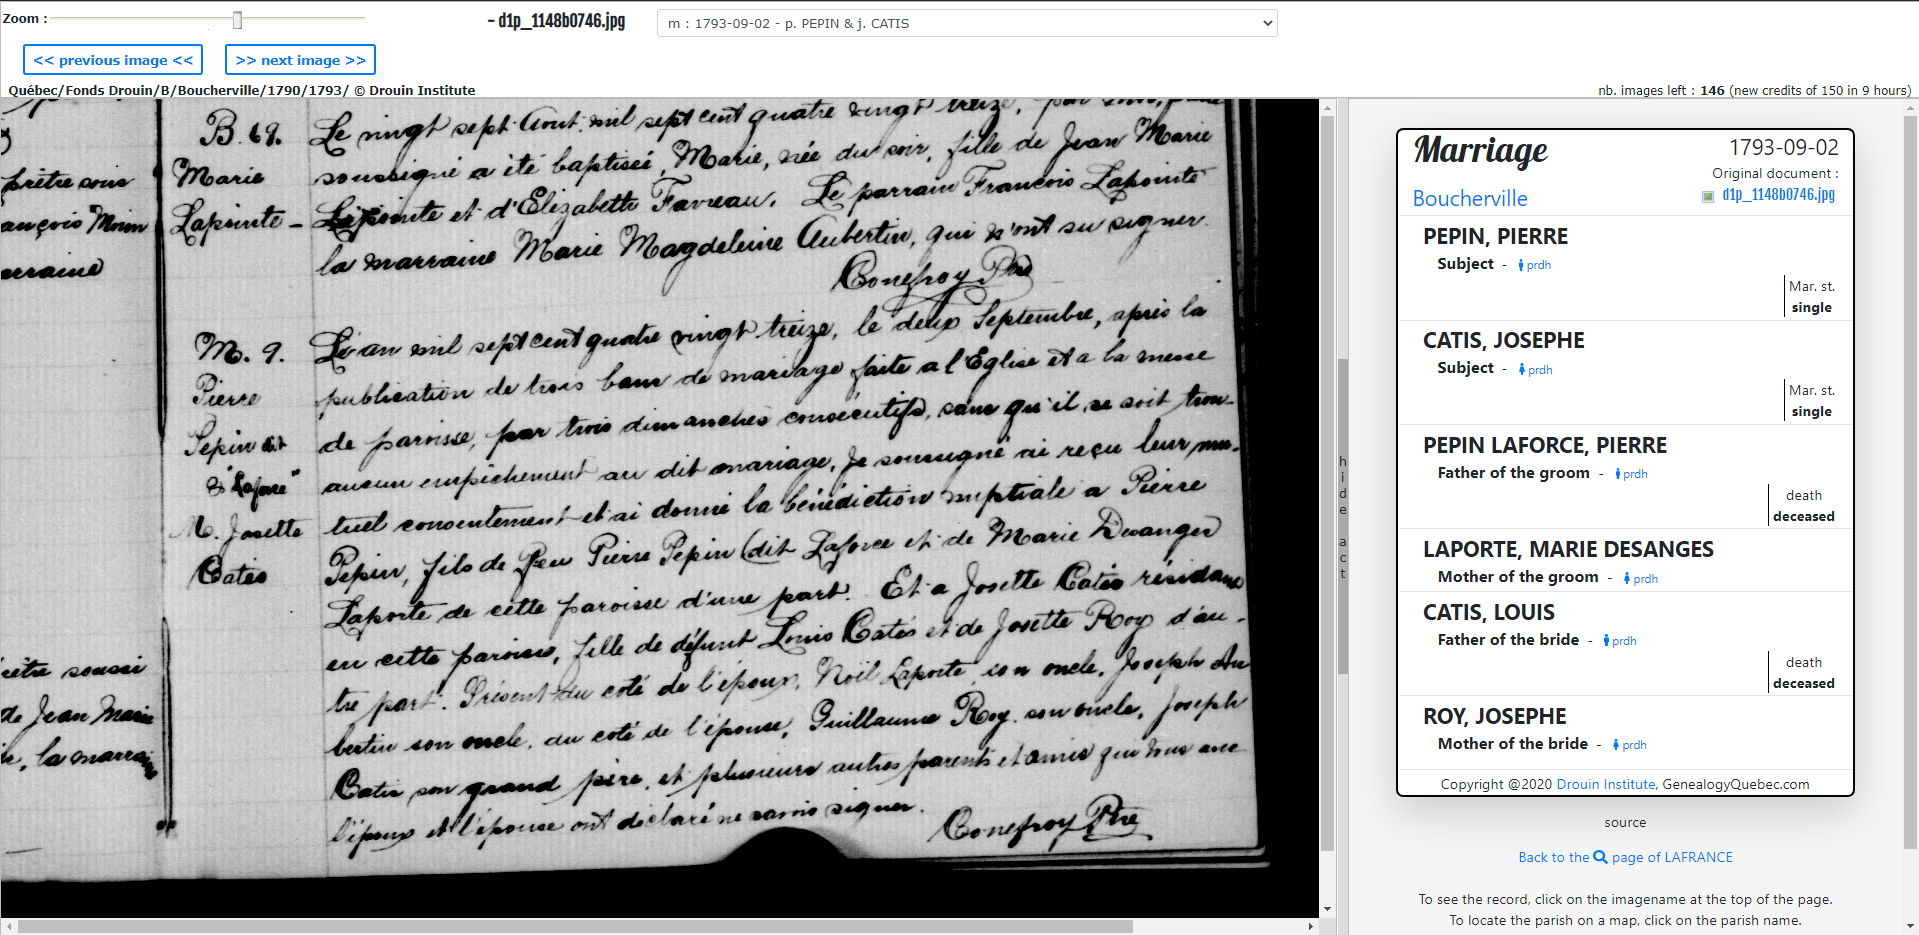 Zoom :
- d1p_1148b0746.jpg
m : 1793-09-02 - p. PEPIN & j. CATIS
<< previous image <<
>> next image >>
Québec/Fonds Drouin/B/Boucherville/1790/1793/ © Drouin Institute
nb. images left : 146 (new credits of 150 in 9 hours)
prêtre sous
ançois Moren
arraine
rêtre soussi
de Jean Marie
la marrain
B. 69.
Marie
Lapointe -
Le vingt sept Aout mil sept cent quatre vingt treize, par moi, prêtre
soussigné a été baptiseé, Marie, née du soir, fille de Jean Marie
Lapointe et d'Elizabeth Favreau. Le parrain François Lapointe
la marraine Marie Magdeleine Aubertin, qui n'ont su signer.
Conefroy Ptre
M. 9.
Pierre
Pepin dit
& "Laforce"
M. Josette
Catis
L'an mil sept cent quatre vingt treize, le deux Septembre, après la
publication de trois bans de mariage faite a l'Eglise et a la messe
de paroisse, par trois dimanches consécutifs, sans qu'il se soit trou-
aucun empêchement au dit mariage, Je soussigné ai reçu leur mu-
tuel consentement et ai donné la bénédiction nuptiale a Pierre
Pepin, fils de feu Pierre Pepin (dit Laforce et de Marie Desanges
Laporte de cette paroisse d'une part. Et a Josette Catis résidant
en cette paroisse, fille de défunt Louis Catis et de Josette Roy d'au-
tre part. Présent du coté de l'époux, Noël Laporte son oncle, Joseph Au
bertin son oncle, du coté de l'épouse, Guillaume Roy son oncle, Joseph
Catis son grand père, et plusieurs autres parents et amis qui tous avec
l'époux et l'épouse ont déclaré ne savoir signer.
Conefroy Ptre
hide act
Marriage
1793-09-02
Original document :
Boucherville
d1p_1148b0746.jpg
PEPIN, PIERRE
Subject - prdh
Mar. st.
single
CATIS, JOSEPHE
Subject - prdh
Mar. st.
single
PEPIN LAFORCE, PIERRE
Father of the groom - prdh
death
deceased
LAPORTE, MARIE DESANGES
Mother of the groom - prdh
CATIS, LOUIS
Father of the bride - prdh
death
deceased
ROY, JOSEPHE
Mother of the bride - prdh
Copyright @2020 Drouin Institute, GenealogyQuebec.com
source
Back to the page of LAFRANCE
To see the record, click on the imagename at the top of the page.
To locate the parish on a map, click on the parish name.